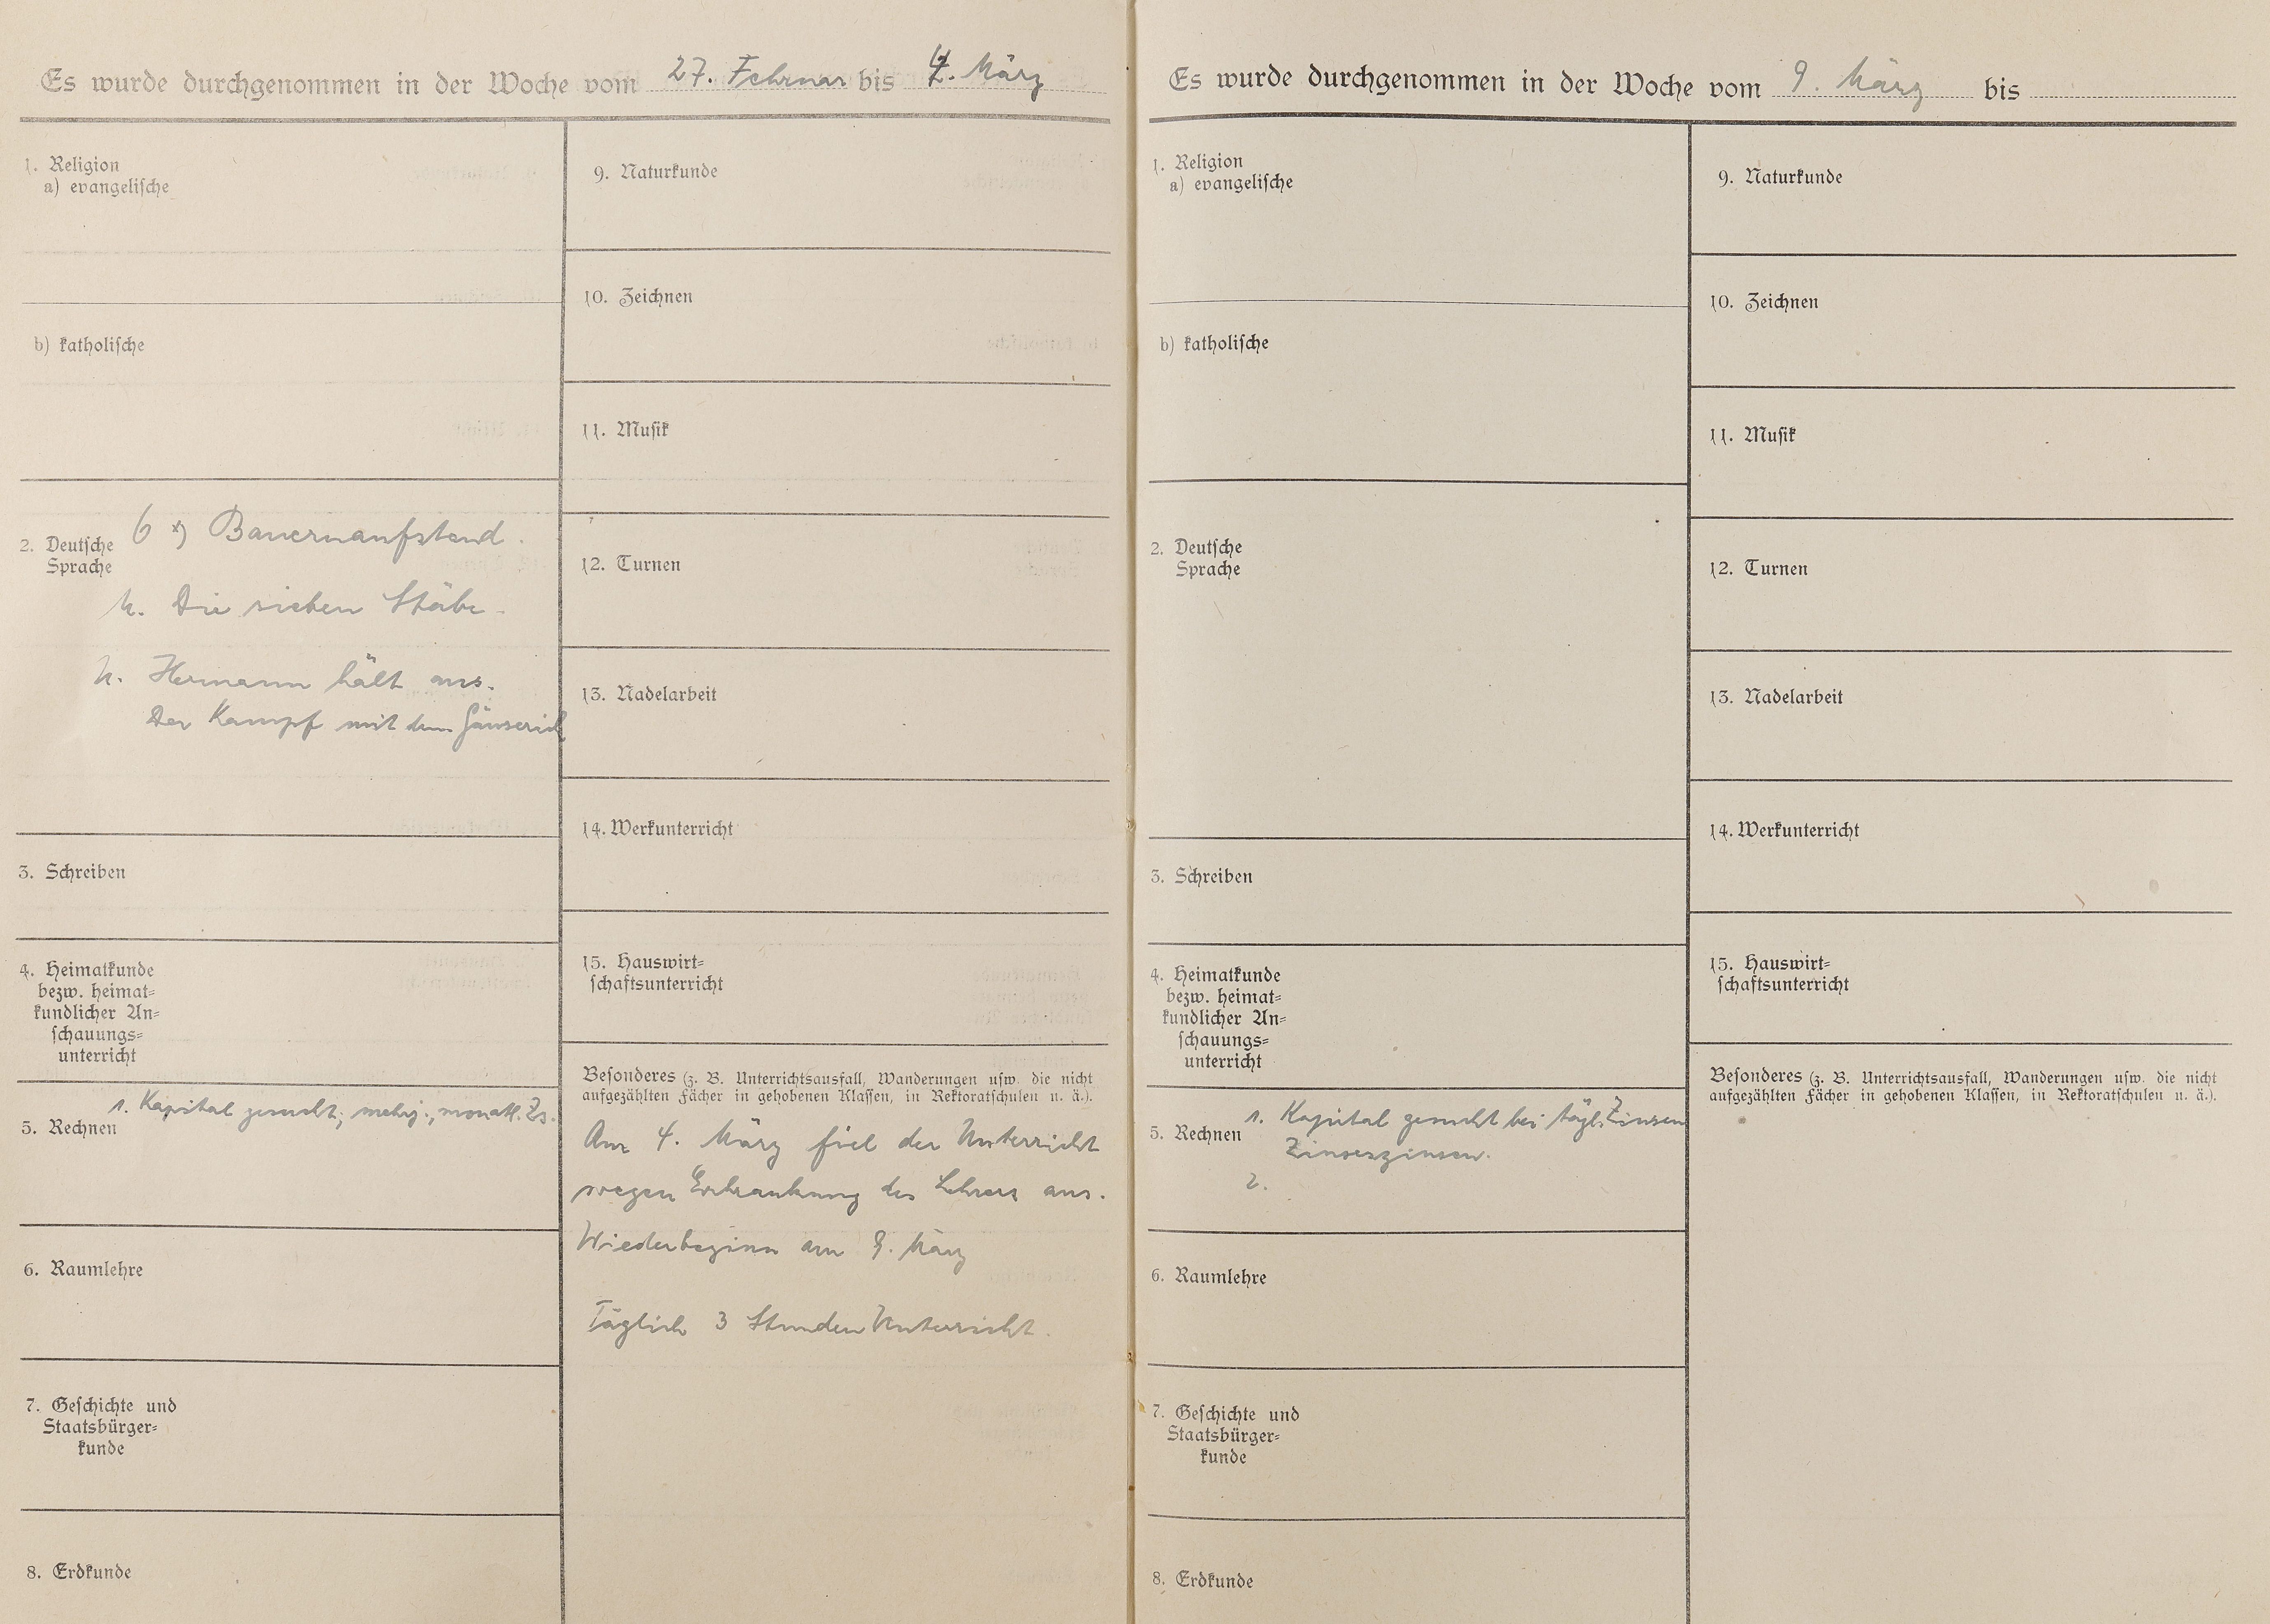 Es wurde durchgenommen in der Woche vom 27. Februar bis 4. März
1. Religion
a) evangelische
b) katholische
2. Deutsche
Sprache
Bauernaufstand.
Die sieben Stäbe.
Hermann hält aus.
Der Kampf mit dem Gänserich
3. Schreiben
4. Heimatkunde
bezw. heimat=
kundlicher An=
schauungs=
unterricht
1. Kapital gesucht; mehrj., monatl. Zs.
5. Rechnen
6. Raumlehre
7. Geschichte und
Staatsbürger=
kunde
8. Erdkunde
9. Naturkunde
10. Zeichnen
11. Musik
12. Turnen
13. Nadelarbeit
14. Werkunterricht
15. Hauswirt=
schaftsunterricht
Besonderes (z. B. Unterrichtsausfall, Wanderungen usw. die nicht
aufgezählten Fächer in gehobenen Klassen, in Rektoratschulen u. ä.).
Am 4. März fiel der Unterricht
wegen Erkrankung des Lehrers aus.
Wiederbeginn am 9. März
Täglich 3 Stunden Unterricht.
Es wurde durchgenommen in der Woche vom 9. März bis
1. Religion
a) evangelische
b) katholische
2. Deutsche
Sprache
3. Schreiben
4. Heimatkunde
bezw. heimat=
kundlicher An=
schauungs=
unterricht
5. Rechnen
1. Kapital gesucht bei tägl. Zinsen
Zinseszinsen.
2.
6. Raumlehre
7. Geschichte und
Staatsbürger=
kunde
8. Erdkunde
9. Naturkunde
10. Zeichnen
11. Musik
12. Turnen
13. Nadelarbeit
14. Werkunterricht
15. Hauswirt=
schaftsunterricht
Besonderes (z. B. Unterrichtsausfall, Wanderungen usw. die nicht
aufgezählten Fächer in gehobenen Klassen, in Rektoratschulen u. ä.).